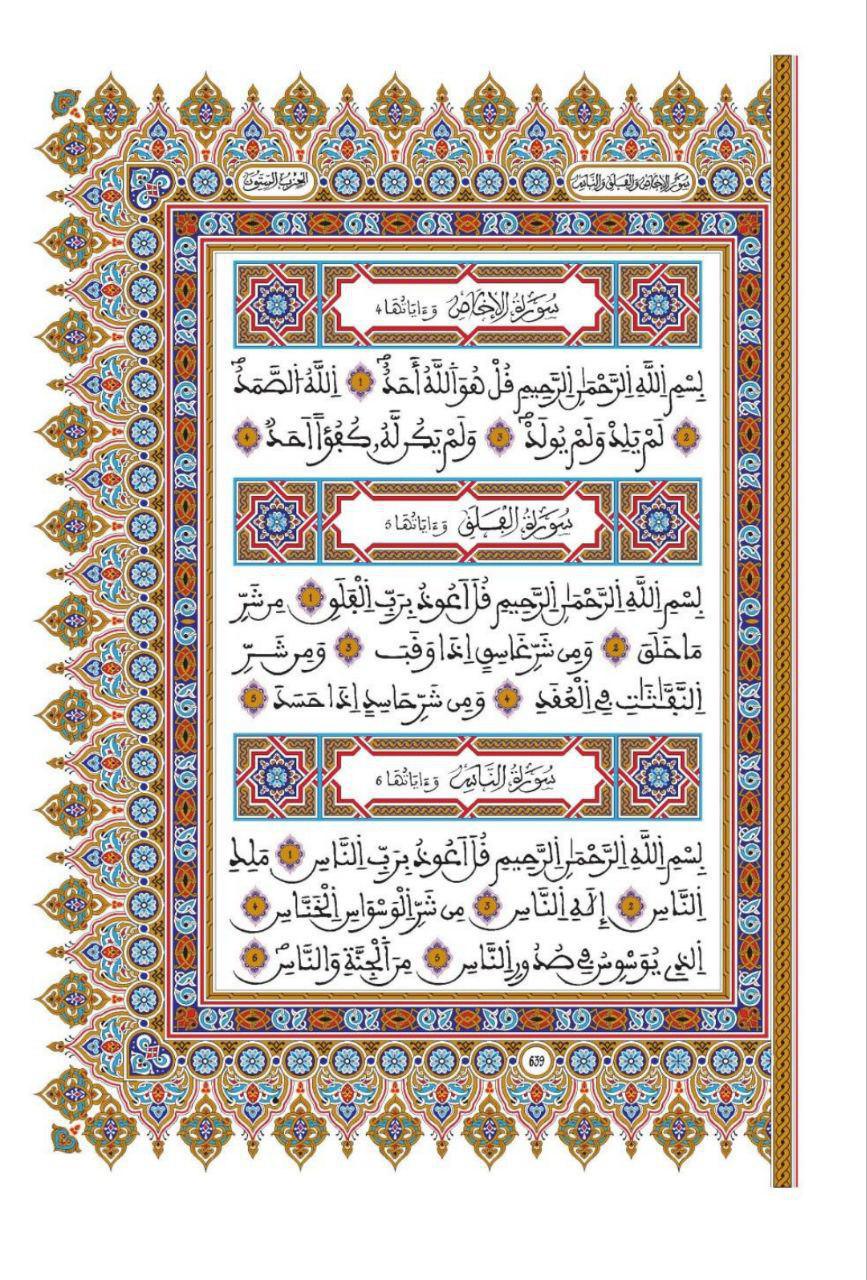 سُورُ الإِخْلَاصِ وَالْفَلَقِ وَالنَّاسِ
الحِزْبُ السِّتُّونَ
سُورَةُ الإِخْلَاصِ وَءَايَاتُهَا 4
بِسْمِ اِللَّهِ اِلرَّحْمَٰنِ اِلرَّحِيمِ قُلْ هُوَ اَللَّهُ أَحَدٌ 1 اِللَّهُ اَلصَّمَدُ
2 لَمْ يَلِدْ وَلَمْ يُولَدْ 3 وَلَمْ يَكُن لَّهُۥ كُفُؤاً اَحَدٌ 4
سُورَةُ الْفَلَقِ وَءَايَاتُهَا 5
بِسْمِ اِللَّهِ اِلرَّحْمَٰنِ اِلرَّحِيمِ قُلَ اَعُوذُ بِرَبِّ اِلْفَلَقِ 1 مِن شَرِّ
مَا خَلَقَ 2 وَمِن شَرِّ غَاسِقٍ اِذَا وَقَبَ 3 وَمِن شَرِّ
اِلنَّفَّٰثَٰتِ فِے اِلْعُقَدِ 4 وَمِن شَرِّ حَاسِدٍ اِذَا حَسَدَ 5
سُورَةُ النَّاسِ وَءَايَاتُهَا 6
بِسْمِ اِللَّهِ اِلرَّحْمَٰنِ اِلرَّحِيمِ قُلَ اَعُوذُ بِرَبِّ اِلنَّاسِ 1 مَلِكِ
اِلنَّاسِ 2 إِلَٰهِ اِلنَّاسِ 3 مِن شَرِّ اِلْوَسْوَاسِ اِلْخَنَّاسِ 4
اِلذِے يُوَسْوِسُ فِے صُدُورِ اِلنَّاسِ 5 مِنَ اَلْجِنَّةِ وَالنَّاسِ 6
639